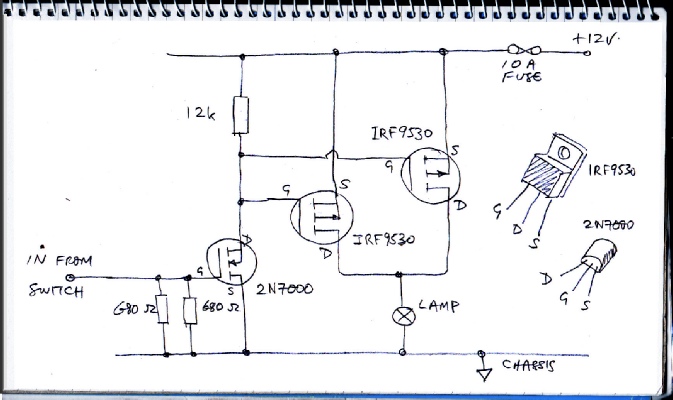 +12V.
10A
FUSE
12k
IRF9530
S
G
D
G
S
D
IRF9530
D
G
S
2N7000
IN FROM
SWITCH
680Ω
680Ω
LAMP
CHASSIS
IRF9530
G
D
S
2N7000
D
G
S